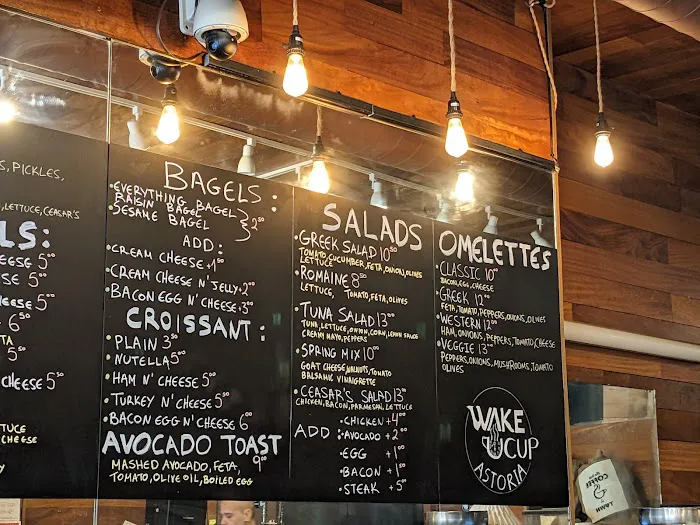 S, PICKLES,
LETTUCE, CEASAR'S
LS:
ESE 5⁰⁰
ESE 5⁰⁰
HEESE 5⁰⁰
6⁵⁰
TA
5⁵⁰
CHEESE 5⁵⁰
TUCE
CHEESE
BAGELS:
•EVERYTHING BAGEL
RAISIN BAGEL
•SESAME BAGEL } 2⁵⁰
ADD:
•CREAM CHEESE +1⁵⁰
CREAM CHEESE N' JELLY +2⁰⁰
•BACON EGG N' CHEESE +3⁰⁰
CROISSANT:
•PLAIN 3⁵⁰
•NUTELLA 5⁰⁰
HAM N' CHEESE 5⁰⁰
•TURKEY N' CHEESE 5⁰⁰
•BACON EGG N' CHEESE 6⁰⁰
AVOCADO TOAST
MASHED AVOCADO, FETA, 9⁰⁰
TOMATO, OLIVE OIL, BOILED EGG
SALADS
•GREEK SALAD 10⁵⁰
TOMATO, CUCUMBER, FETA, ONIONS, OLIVES
LETTUCE
•ROMAINE 8⁵⁰
LETTUCE, TOMATO, FETA, OLIVES
•TUNA SALAD 13⁰⁰
TUNA, LETTUCE, ONION, CORN, LEMON SAUCE
CREAMY MAYO, PEPPERS
•SPRING MIX 10⁰⁰
GOAT CHEESE, WALNUTS, TOMATO
BALSAMIC VINAIGRETTE
•CEASAR'S SALAD 13⁰⁰
CHICKEN, BACON, PARMESAN, LETTUCE
ADD:
•CHICKEN +4⁰⁰
•AVOCADO +2⁰⁰
•EGG +1⁰⁰
•BACON +1⁰⁰
•STEAK +5⁰⁰
OMELETTES
•CLASSIC 10⁰⁰
BACON, EGG, CHEESE
•GREEK 12⁰⁰
FETA, TOMATO, PEPPERS, ONIONS, OLIVES
•WESTERN 12⁰⁰
HAM, ONIONS, PEPPERS, TOMATO, CHEESE
•VEGGIE 13⁰⁰
PEPPERS, ONIONS, MUSHROOMS, TOMATO
OLIVES
WAKE
UCUP
ASTORIA
COFFEE
TOWN